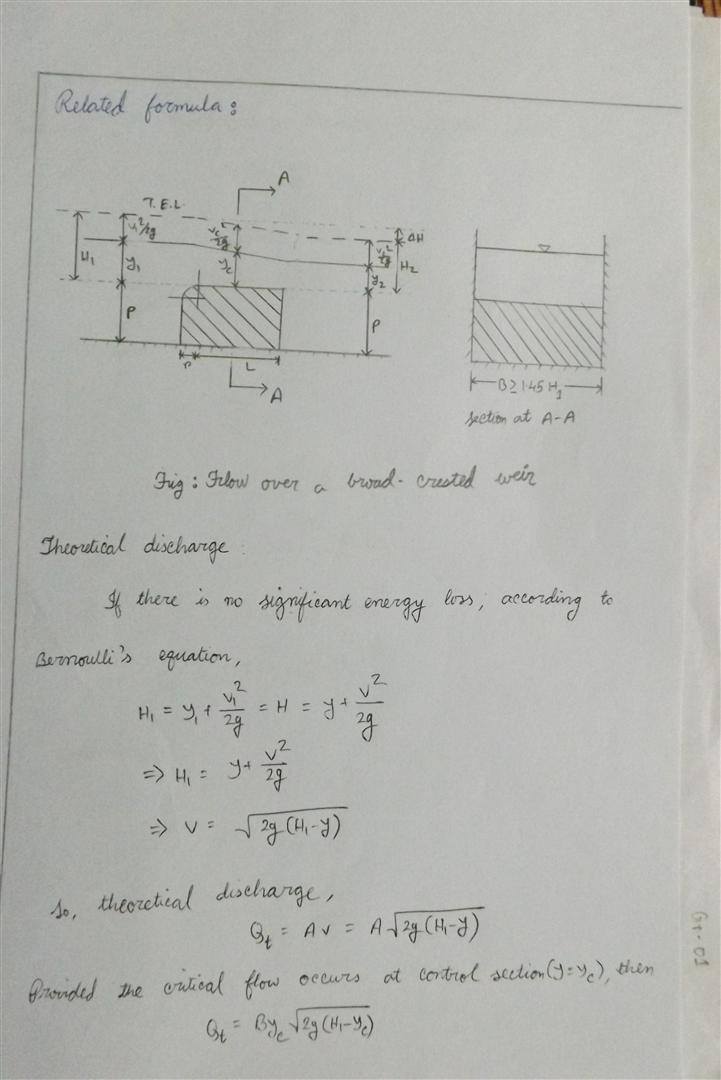 Related formula:
A
T.E.L
v₁²/2g
v_c²/2g
ΔH
v₂²/2g
H₁
y₁
y_c
H₂
y₂
P
P
r
L
A
B≥1.45 H₁
section at A-A
Fig: Flow over a broad-crested weir
Theoretical discharge:
If there is no significant energy loss, according to
Bernoulli's equation,
H₁ = y₁ + v₁²/2g = H = y + v²/2g
=> H₁ = y + v²/2g
=> v = √2g(H₁-y)
So, theoretical discharge,
Q_t = Av = A√2g(H₁-y)
Provided the critical flow occurs at control section (y=y_c), then
Q_t = By_c√2g(H₁-y_c)
Gr-01